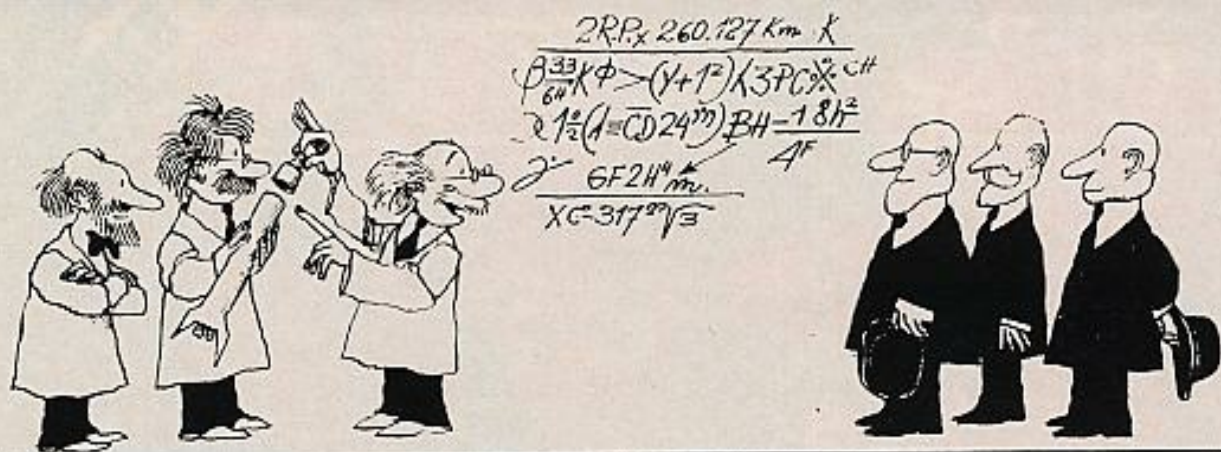 2R.P.x 260.127 Km K
β 33/6H KΦ > (y+1²) 3PC CH
1 2/2 (1=CD24m) BH = 18h²/4F
6F2H⁴ m.
XC=317²²√3